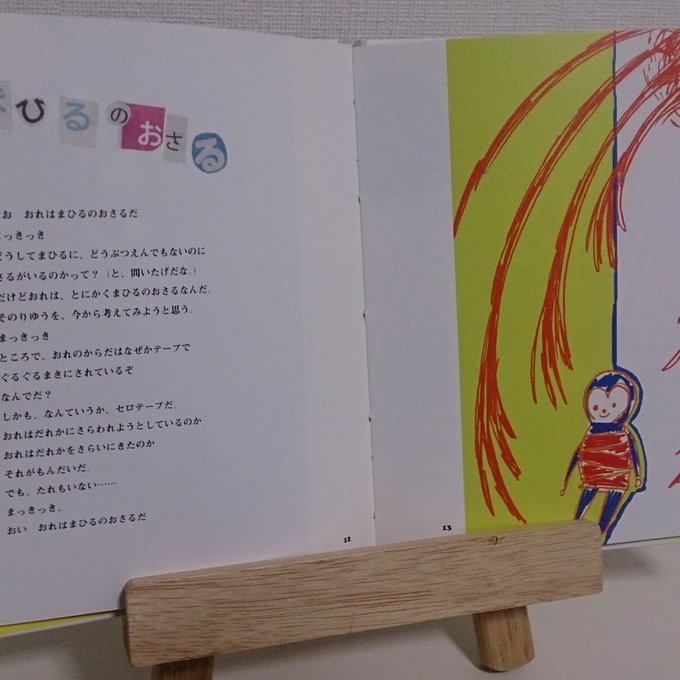 ひるのおさる
お おれはまひるのおさるだ
まっきっき
どうしてまひるに、どうぶつえんでもないのに
さるがいるのかって？（と、聞いたげだな。）
だけどおれは、とにかくまひるのおさるなんだ。
そのりゆうを、今から考えてみようと思う。
まっきっき
ところで、おれのからだはなぜかテープで
ぐるぐるまきにされているぞ
なんでだ？
しかも、なんていうか、セロテープだ。
おれはだれかにさらわれようとしているのか
おれはだれかをさらいにきたのか
それがもんだいだ。
でも、たれもいない……
まっきっき、
おい おれはまひるのおさるだ
12
13